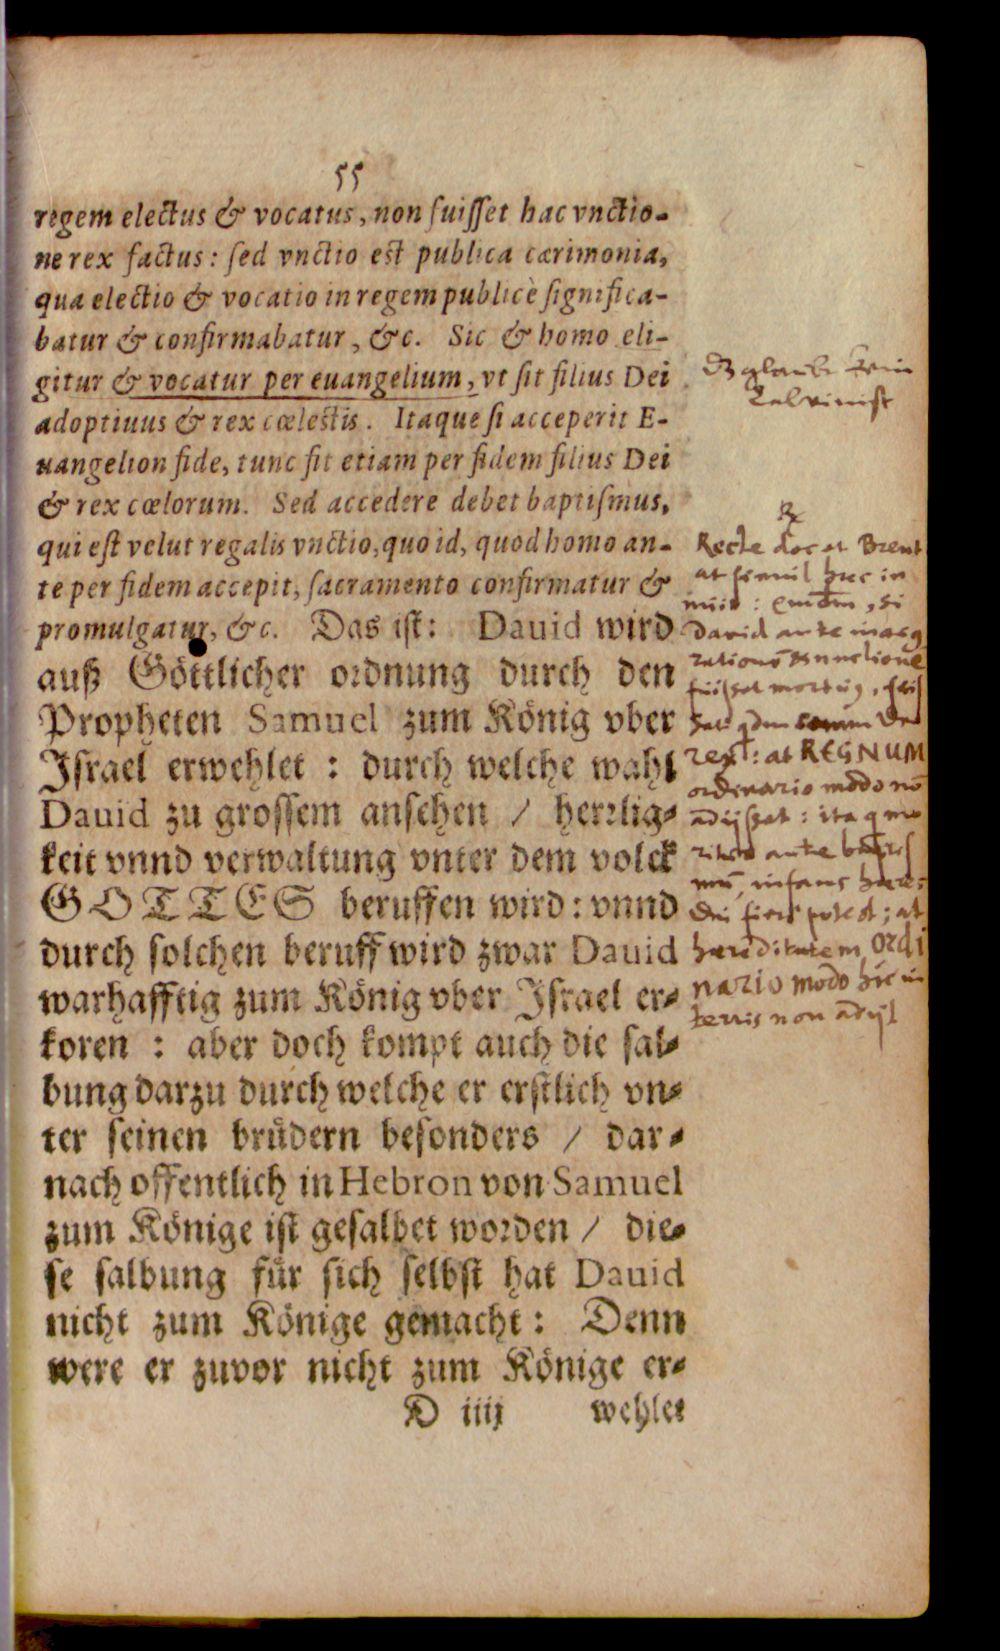 55
regem electus & vocatus, non fuisset hac vnctio-
ne rex factus: sed vnctio est publica cærimonia,
qua electio & vocatio in regem publicè significa-
batur & confirmabatur, &c. Sic & homo eli-
gitur & vocatur per euangelium, vt sit filius Dei
adoptiuus & rex cœlestis. Itaque si acceperit E-
uangelion fide, tunc fit etiam per fidem filius Dei
& rex cœlorum. Sed accedere debet baptismus,
qui est velut regalis vnctio, quo id, quod homo an-
te per fidem accepit, sacramento confirmatur &
promulgatur, &c. Das ist: Dauid wird
auß Göttlicher ordnung durch den
Propheten Samuel zum König vber
Israel erwehlet : durch welche wahl
Dauid zu grossem ansehen / herrlig-
keit vnnd verwaltung vnter dem volck
GOTTES beruffen wird: vnnd
durch solchen beruff wird zwar Dauid
warhafftig zum König vber Israel er-
koren : aber doch kompt auch die sal-
bung darzu durch welche er erstlich vn-
ter seinen brüdern besonders / dar-
nach offentlich in Hebron von Samuel
zum Könige ist gesalbet worden / die-
se salbung für sich selbst hat Dauid
nicht zum Könige gemacht: Denn
were er zuvor nicht zum Könige er-
D iiij wehlet
glaube kein
Calvinist
Recte docet Brent
at simul hec in
David ante
rex : at REGNUM
ordinario modo nō
: ita
ante
infans
fieri potest; at
hæreditatem ordi
nario modo hic in
terris non